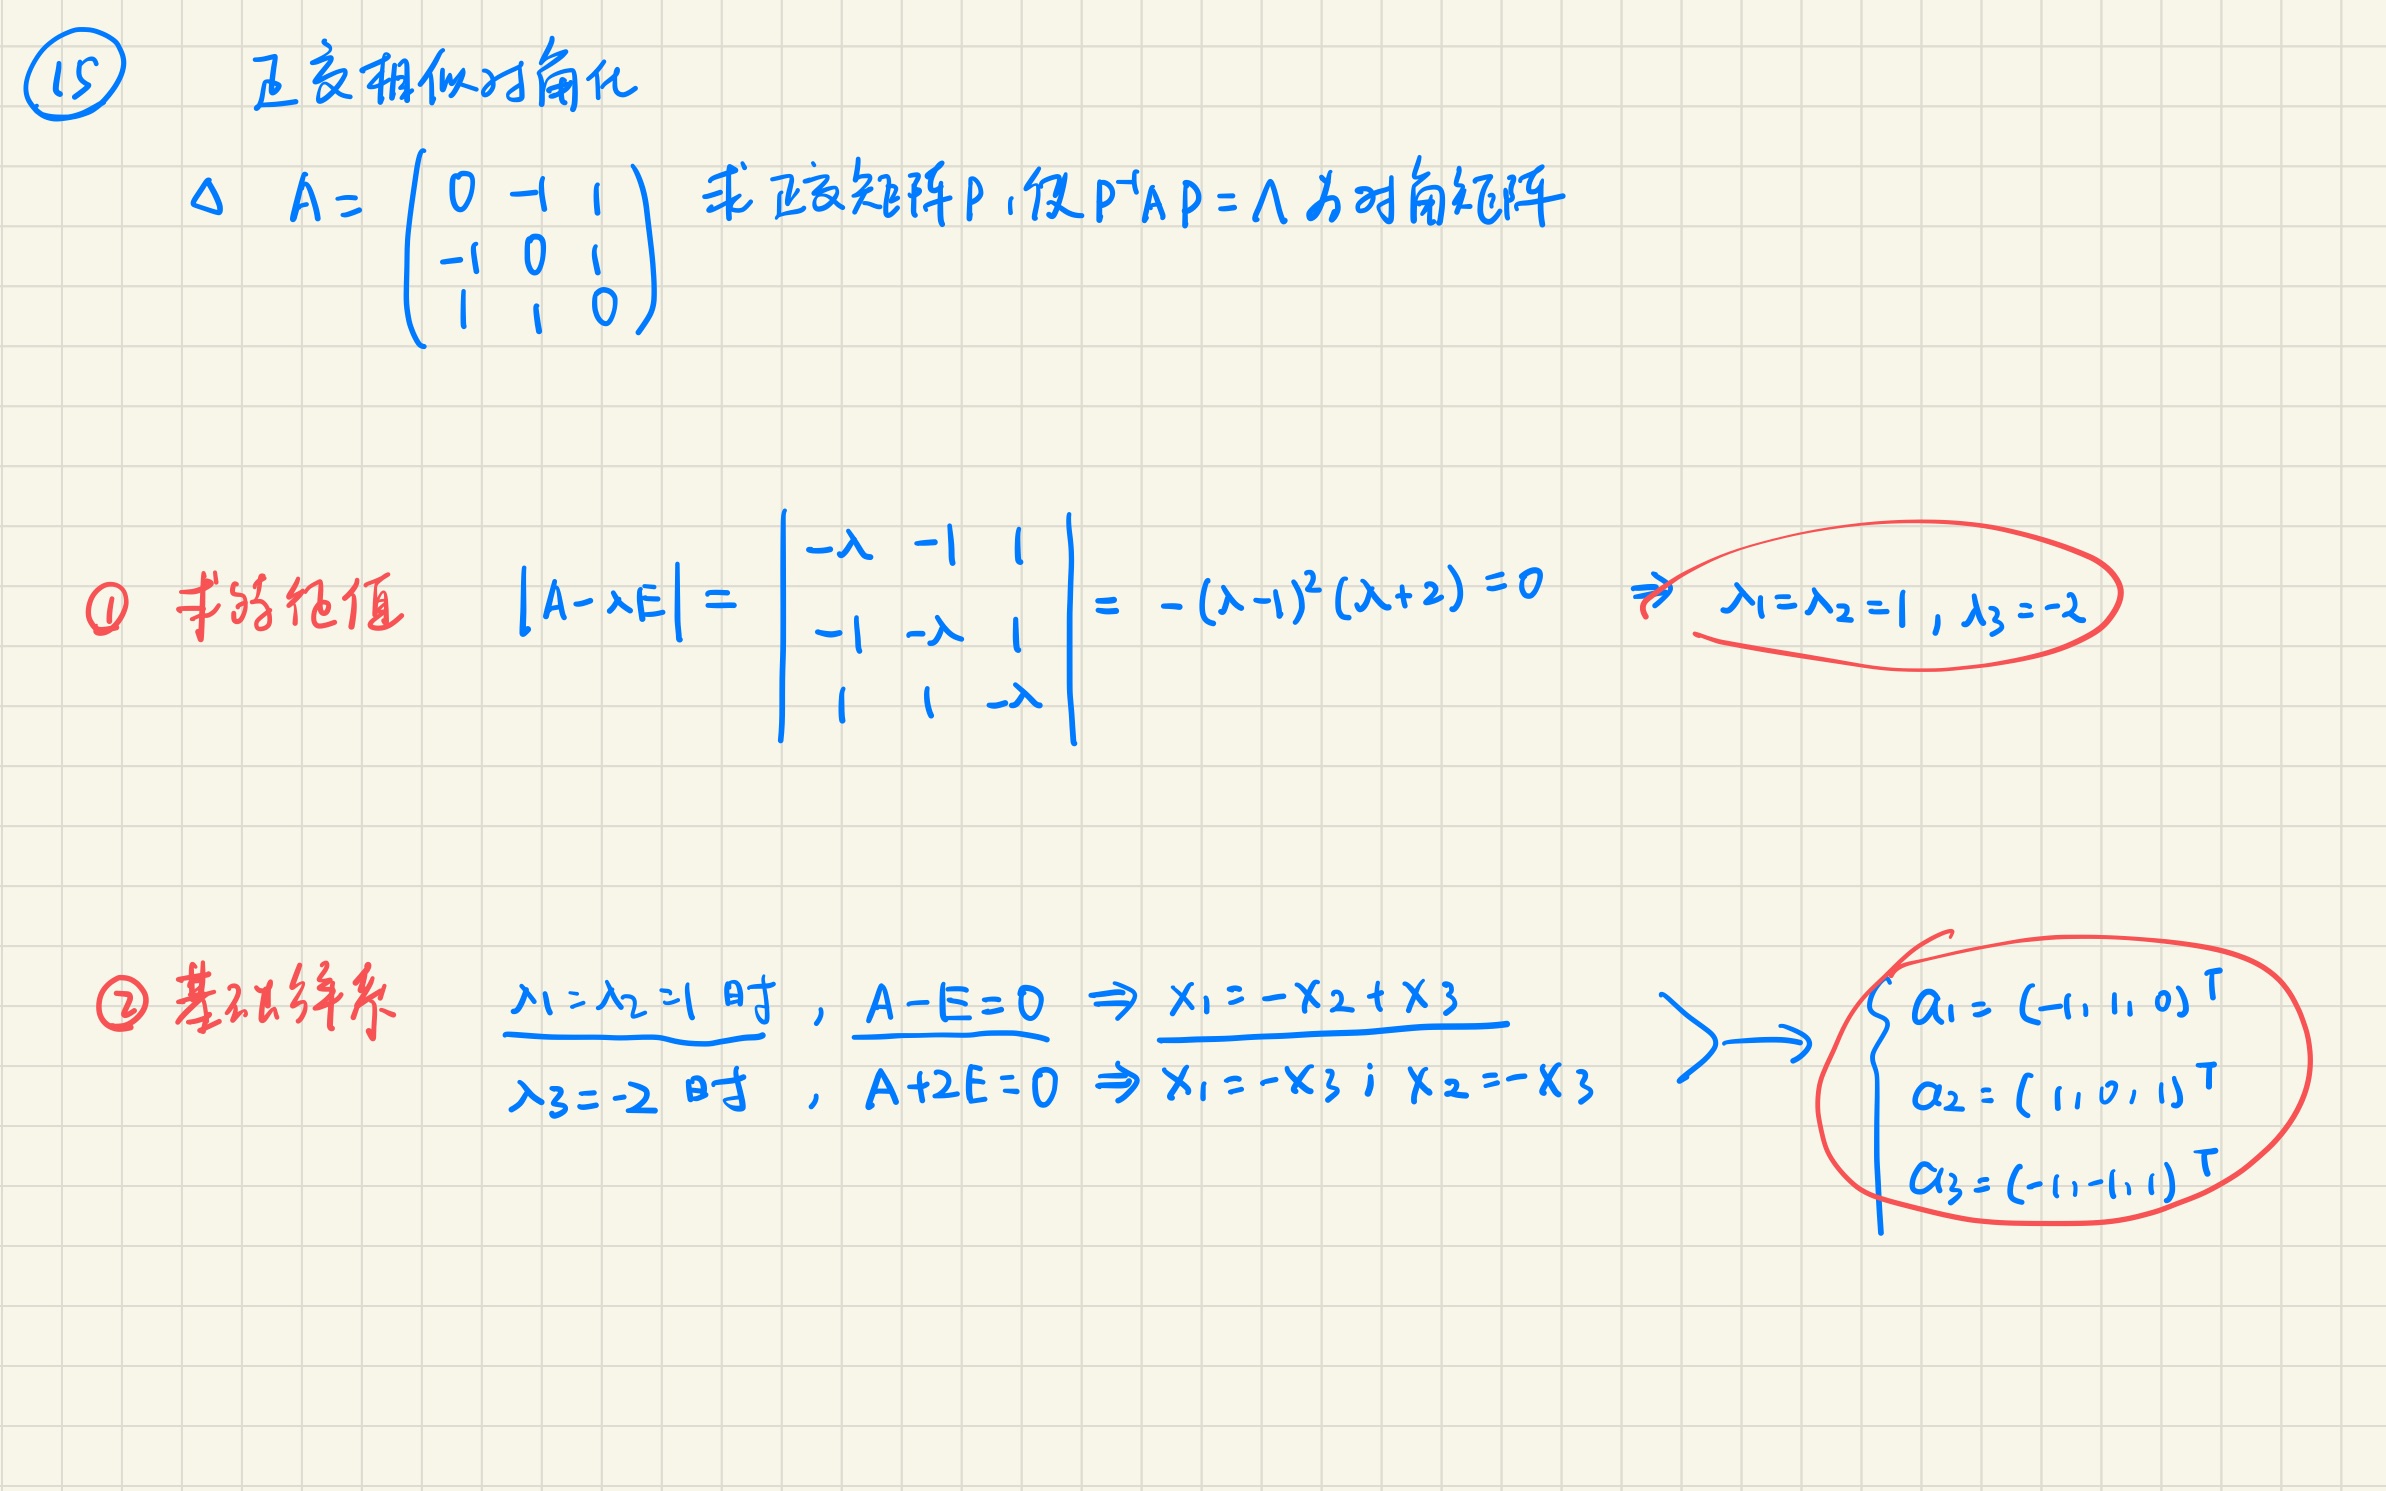 ⑮ 正交相似对角化
△ A = ( 0 -1 1 求正交矩阵P,使P⁻¹AP=Λ为对角矩阵
-1 0 1
1 1 0 )
① 求特征值 |A-λE| = | -λ -1 1 | = -(λ-1)²(λ+2)=0 ⇒ λ1=λ2=1, λ3=-2
| -1 -λ 1 |
| 1 1 -λ |
② 基础解系 λ1=λ2=1时, A-E=0 ⇒ X1=-X2+X3
λ3=-2时, A+2E=0 ⇒ X1=-X3; X2=-X3
a1=(-1,1,0)ᵀ
a2=(1,0,1)ᵀ
a3=(-1,-1,1)ᵀ